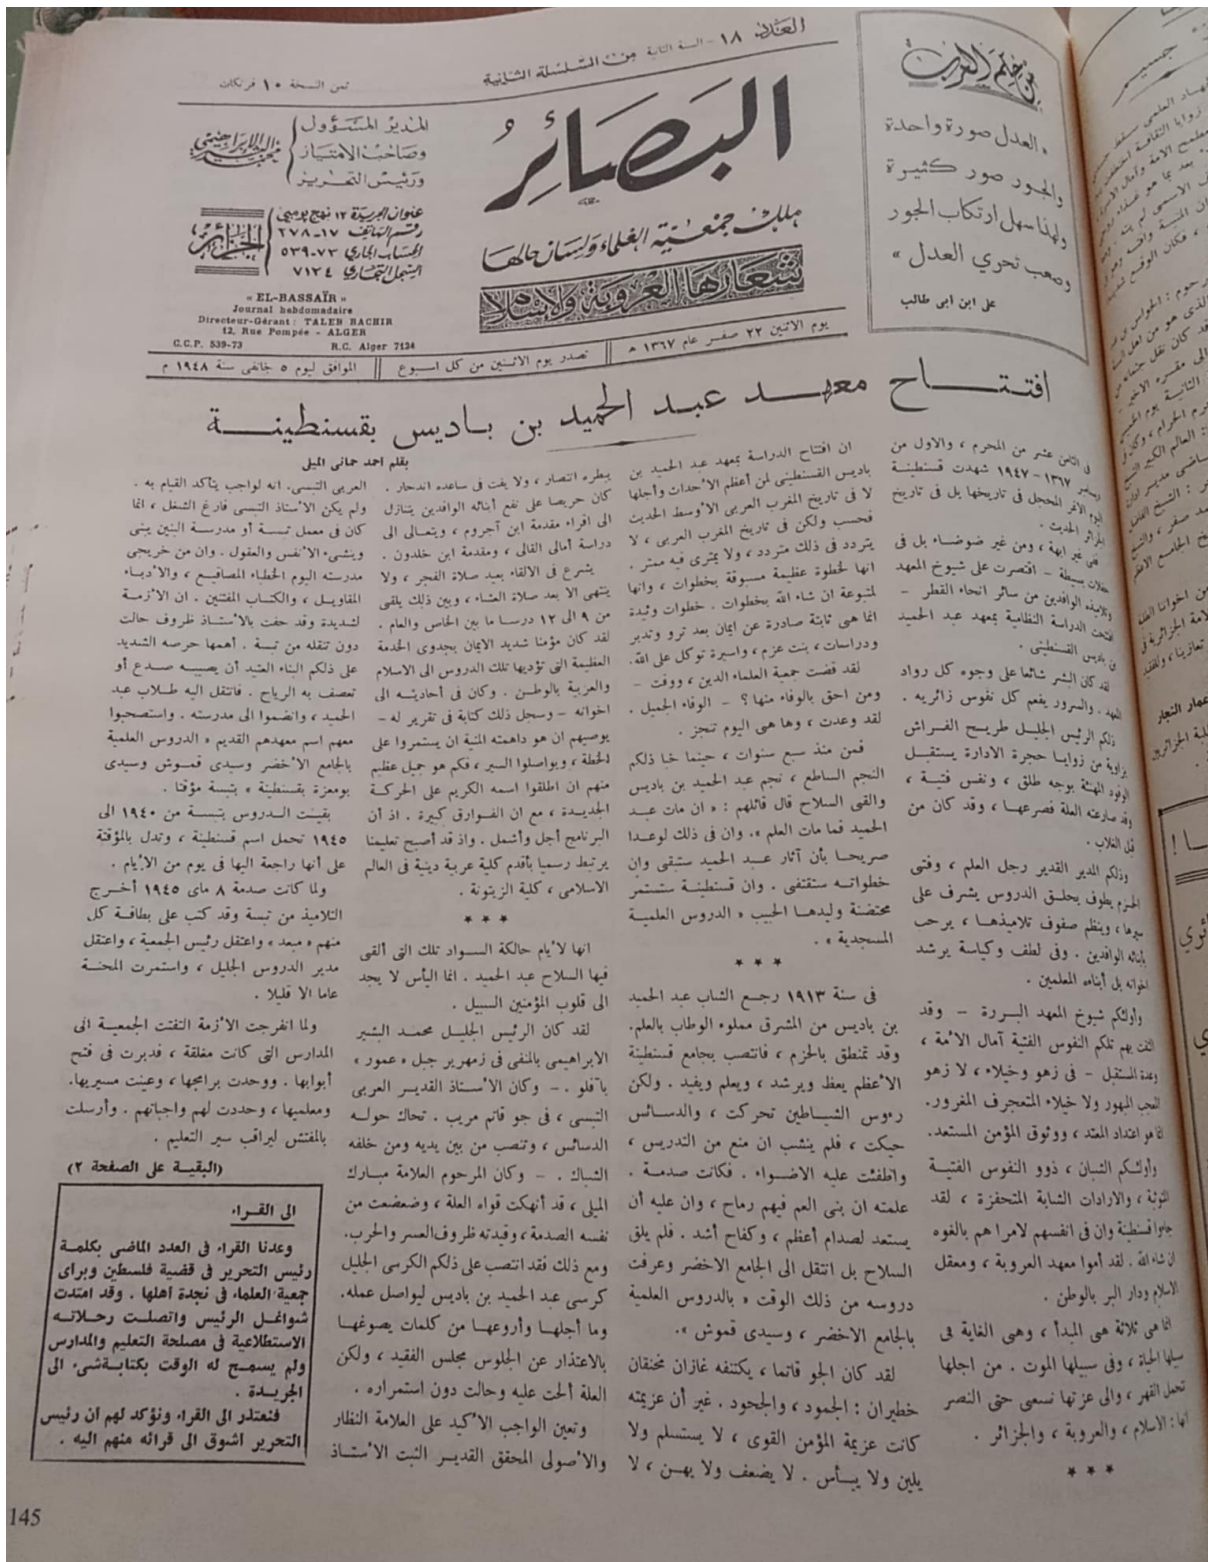 العدد ١٨ - السنة الثانية من السلسلة الثانية
ثمن النسخة ١٠ فرنكات
من حكم العرب
« العدل صورة واحدة
والجور صور كثيرة
ولهذا سهل ارتكاب الجور
وصعب تحري العدل »
على ابن ابى طالب
البصائر
ملك جمعية العلماء ولسان حالها
شعارها العروبة والاسلام
المدير المسؤول
وصاحب الامتياز
ورئيس التحرير
محمد البشير الابراهيمي
عنوان الجريدة ١٢ نهج بومبي
رقم الهاتف ١٧-٢٧٨
الحساب الجارى ٧٣-٥٣٩
السجل التجارى ٧١٣٤
الجزائر
« EL-BASSAÏR »
Journal hebdomadaire
Directeur-Gérant : TALEB BACHIR
12, Rue Pompée - ALGER
C.C.P. 539-73 R.C. Alger 7134
يوم الاثنين ٢٢ صفر عام ١٣٦٧ ه
تصدر يوم الاثنين من كل اسبوع
الموافق ليوم ٥ جانفى سنة ١٩٤٨ م
افتتاح معهد عبد الحميد بن باديس بقسنطينة
بقلم احمد حمانى الميلى
فى الثامن عشر من المحرم ، والاول من
ديسمبر ١٣٦٧ - ١٩٤٧ شهدت قسنطينة
اليوم الاغر المحجل فى تاريخها بل فى تاريخ
الجزائر الحديث .
ففى غير ابهة ، ومن غير ضوضاء بل فى
حفلات بسيطة - اقتصرت على شيوخ المعهد
وتلاميذه الوافدين من سائر انحاء القطر -
افتتحت الدراسة النظامية بمعهد عبد الحميد
بن باديس القسنطينى .
لقد كان البشر شائعا على وجوه كل رواد
المعهد . والسرور يفعم كل نفوس زائريه .
ذلكم الرئيس الجليل طريح الفراش
بزاوية من زوايا حجرة الادارة يستقبل
الوفود المهنئة بوجه طلق ، ونفس فتية ،
وقد صارعته العلة فصرعها ، وقد كان من
قبل الغلاب .
وذلكم المدير القدير رجل العلم ، وفتى
الحزم يطوف بحلق الدروس يشرف على
سيرها ، وينظم صفوف تلاميذها ، يرحب
بأبنائه الوافدين . وفى لطف وكياسة يرشد
اخوانه بل أبناءه المعلمين .
وأولئكم شيوخ المعهد البررة - وقد
التفت بهم تلكم النفوس الفتية آمال الأمة ،
وعدة المستقبل - فى زهو وخيلاء ، لا زهو
المعجب المبهور ولا خيلاء المتعجرف المغرور.
انما هو اعتداد المعتد ، ووثوق المؤمن المستعد.
وأولئكم الشبان ، ذوو النفوس الفتية
المتوثبة ، والارادات الشابة المتحفزة ، لقد
جاءوا قسنطينة وان فى انفسهم لامرا هم بالغوه
ان شاء الله . لقد أموا معهد العروبة ، ومعقل
الاسلام ودار البر بالوطن .
انما هى ثلاثة هى المبدأ ، وهى الغاية فى
سبيلها الحياة ، وفى سبيلها الموت . من اجلها
تحمل القهر ، والى عزتها نسعى حتى النصر
انها : الاسلام ، والعروبة ، والجزائر .
* * *
ان افتتاح الدراسة بمعهد عبد الحميد بن
باديس القسنطينى لمن أعظم الأحداث وأجلها
لا فى تاريخ المغرب العربى الأوسط الحديث
فحسب ولكن فى تاريخ المغرب العربى ، لا
يتردد فى ذلك متردد ، ولا يمترى فيه ممتر .
انها لخطوة عظيمة مسبوقة بخطوات ، وانها
لمتبوعة ان شاء الله بخطوات . خطوات وئيدة
انما هى ثابتة صادرة عن ايمان بعد ترو وتدبر
ودراسات ، بنت عزم ، واسيرة توكل على الله.
لقد قضت جمعية العلماء الدين ، ووفت -
ومن احق بالوفاء منها ؟ - الوفاء الجميل .
لقد وعدت ، وها هى اليوم تنجز .
فمن منذ سبع سنوات ، حينما خبا ذلكم
النجم الساطع ، نجم عبد الحميد بن باديس
والقى السلاح قال قائلهم : « ان مات عبد
الحميد فما مات العلم ». وان فى ذلك لوعدا
صريحا بأن آثار عبد الحميد ستبقى وان
خطواته ستقتفى . وان قسنطينة ستستمر
محتضنة وليدها الحبيب « الدروس العلمية
المسجدية » .
* * *
فى سنة ١٩١٣ رجع الشاب عبد الحميد
بن باديس من المشرق مملوء الوطاب بالعلم.
وقد تمنطق بالحزم ، فانتصب بجامع قسنطينة
الأعظم يعظ ويرشد ، ويعلم ويفيد . ولكن
رءوس الشياطين تحركت ، والدسائس
حيكت ، فلم ينشب ان منع من التدريس ،
واطفئت عليه الاضواء . فكانت صدمة .
علمته ان بنى العم فيهم رماح ، وان عليه أن
يستعد لصدام أعظم ، وكفاح أشد . فلم يلق
السلاح بل انتقل الى الجامع الاخضر وعرفت
دروسه من ذلك الوقت « بالدروس العلمية
بالجامع الاخضر ، وسيدى قموش ».
لقد كان الجو قاتما ، يكتنفه غازان مخنقان
خطيران : الجمود ، والجحود . غير أن عزيمته
كانت عزيمة المؤمن القوى ، لا يستسلم ولا
يلين ولا ييأس . لا يضعف ولا يهن ، لا
يبطره انتصار ، ولا يفت فى ساعده اندحار .
كان حريصا على نفع أبنائه الوافدين يتنازل
الى اقراء مقدمة ابن آجروم ، ويتعالى الى
دراسة أمالى القالى ، ومقدمة ابن خلدون .
يشرع فى الالقاء بعيد صلاة الفجر ، ولا
ينتهى الا بعد صلاة العشاء ، وبين ذلك يلقى
من ٩ الى ١٢ درسا ما بين الخاص والعام .
لقد كان مؤمنا شديد الايمان بجدوى الخدمة
العظيمة التى تؤديها تلك الدروس الى الاسلام
والعربية بالوطن . وكان فى أحاديثه الى
اخوانه - وسجل ذلك كتابة فى تقرير له -
يوصيهم ان هو داهمته المنية ان يستمروا على
الخطة ، ويواصلوا السير ، فكم هو جميل عظيم
منهم ان اطلقوا اسمه الكريم على الحركة
الجديدة ، مع ان الفوارق كبيرة . اذ أن
البرنامج أجل وأشمل . واذ قد أصبح تعليمنا
يرتبط رسميا بأقدم كلية عربية دينية فى العالم
الاسلامى ، كلية الزيتونة .
* * *
انها لأيام حالكة السواد تلك التى ألقى
فيها السلاح عبد الحميد . انما اليأس لا يجد
الى قلوب المؤمنين السبيل .
لقد كان الرئيس الجليل محمد البشير
الابراهيمى بالمنفى فى زمهرير جبل « عمور »
بآفلو . - وكان الأستاذ القدير العربى
التبسى ، فى جو قاتم مريب . تحاك حوله
الدسائس ، وتنصب من بين يديه ومن خلفه
الشباك . - وكان المرحوم العلامة مبارك
الميلى ، قد أنهكت قواه العلة ، وضعضعت من
نفسه الصدمة ، وقيدته ظروف العسر والحرب.
ومع ذلك فقد انتصب على ذلكم الكرسى الجليل
كرسى عبد الحميد بن باديس ليواصل عمله.
وما أجلها وأروعها من كلمات يصوغها
بالاعتذار عن الجلوس مجلس الفقيد ، ولكن
العلة ألحت عليه وحالت دون استمراره .
وتعين الواجب الأكيد على العلامة النظار
والأصولى المحقق القدير الثبت الأستاذ
العربى التبسى. انه لواجب يتأكد القيام به .
ولم يكن الأستاذ التبسى فارغ الشغل ، انما
كان فى معمل تبسة أو مدرسة البنين يبنى
وينشىء الأنفس والعقول . وان من خريجى
مدرسته اليوم الخطباء المصاقيع ، والأدباء
المقاويل ، والكتاب المفتنين . ان الأزمة
لشديدة وقد حفت بالأستاذ ظروف حالت
دون تنقله من تبسة . أهمها حرصه الشديد
على ذلكم البناء العتيد أن يصيبه صدع أو
تعصف به الرياح . فانتقل اليه طلاب عبد
الحميد ، وانضموا الى مدرسته . واستصحبوا
معهم اسم معهدهم القديم « الدروس العلمية
بالجامع الأخضر وسيدى قموش وسيدى
بومعزة بقسنطينة » بتبسة مؤقتا .
بقيت الدروس بتبسة من ١٩٤٠ الى
١٩٤٥ تحمل اسم قسنطينة ، وتدل بالمؤقتة
على أنها راجعة اليها فى يوم من الأيام .
ولما كانت صدمة ٨ ماى ١٩٤٥ أخرج
التلاميذ من تبسة وقد كتب على بطاقة كل
منهم « مبعد » واعتقل رئيس الجمعية ، واعتقل
مدير الدروس الجليل ، واستمرت المحنة
عاما الا قليلا .
ولما انفرجت الأزمة التفتت الجمعية الى
المدارس التى كانت مغلقة ، فدبرت فى فتح
أبوابها . ووحدت برامجها ، وعينت مسيريها.
ومعلميها ، وحددت لهم واجباتهم . وأرسلت
بالمفتش ليراقب سير التعليم .
(البقية على الصفحة ٢)
الى القراء
وعدنا القراء فى العدد الماضى بكلمة
رئيس التحرير فى قضية فلسطين وبراى
جمعية العلماء فى نجدة اهلها . وقد امتدت
شواغل الرئيس واتصلت رحلاته
الاستطلاعية فى مصلحة التعليم والمدارس
ولم يسمح له الوقت بكتابة شىء الى
الجريدة .
فنعتذر الى القراء ونؤكد لهم ان رئيس
التحرير اشوق الى قرائه منهم اليه .
145